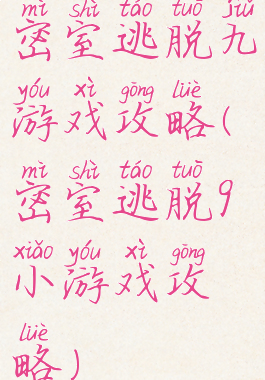 mì shì táo tuō jiǔ
密室逃脱九
yóu xì gōng lüè
游戏攻略(
mì shì táo tuō
密室逃脱9
xiǎo yóu xì gōng
小游戏攻
lüè
略)